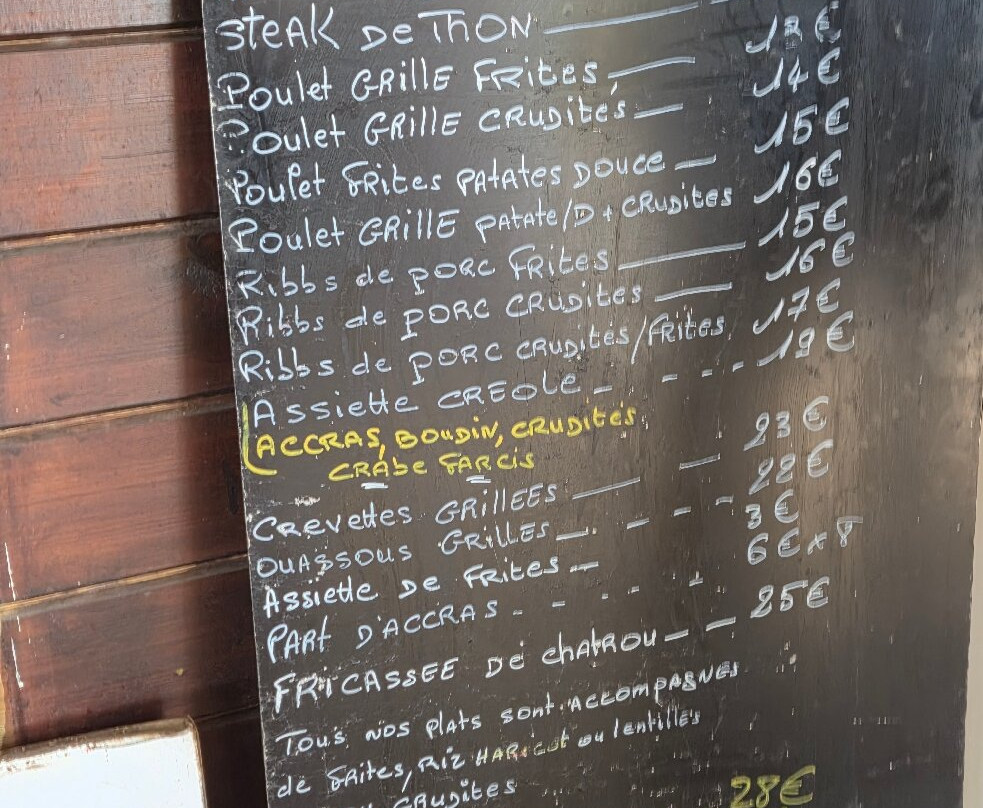 STEAK DE THON
Poulet GRILLE FRITES, 13€
Poulet GRILLE CRUDITES 14€
Poulet FRITES PATATES DOUCE 15€
Poulet GRILLE PATATE/D + CRUDITES 16€
Ribbs de PORC FRITES 15€
Ribbs de PORC CRUDITES 16€
Ribbs de PORC CRUDITES/FRITES 17€
Assiette CREOLE 19€
(ACCRAS, BOUDIN, CRUDITÉS
CRABE FARCIS
CREVETTES GRILLEES 23€
OUASSOUS GRILLES 22€
Assiette DE FRITES 3€
PART D'ACCRAS 6€ x 8
FRICASSEE DE chatrou 25€
Tous nos plats sont ACCOMPAGNES
de frites, RIZ HARICOT ou lentilles
CRUDITES 28€